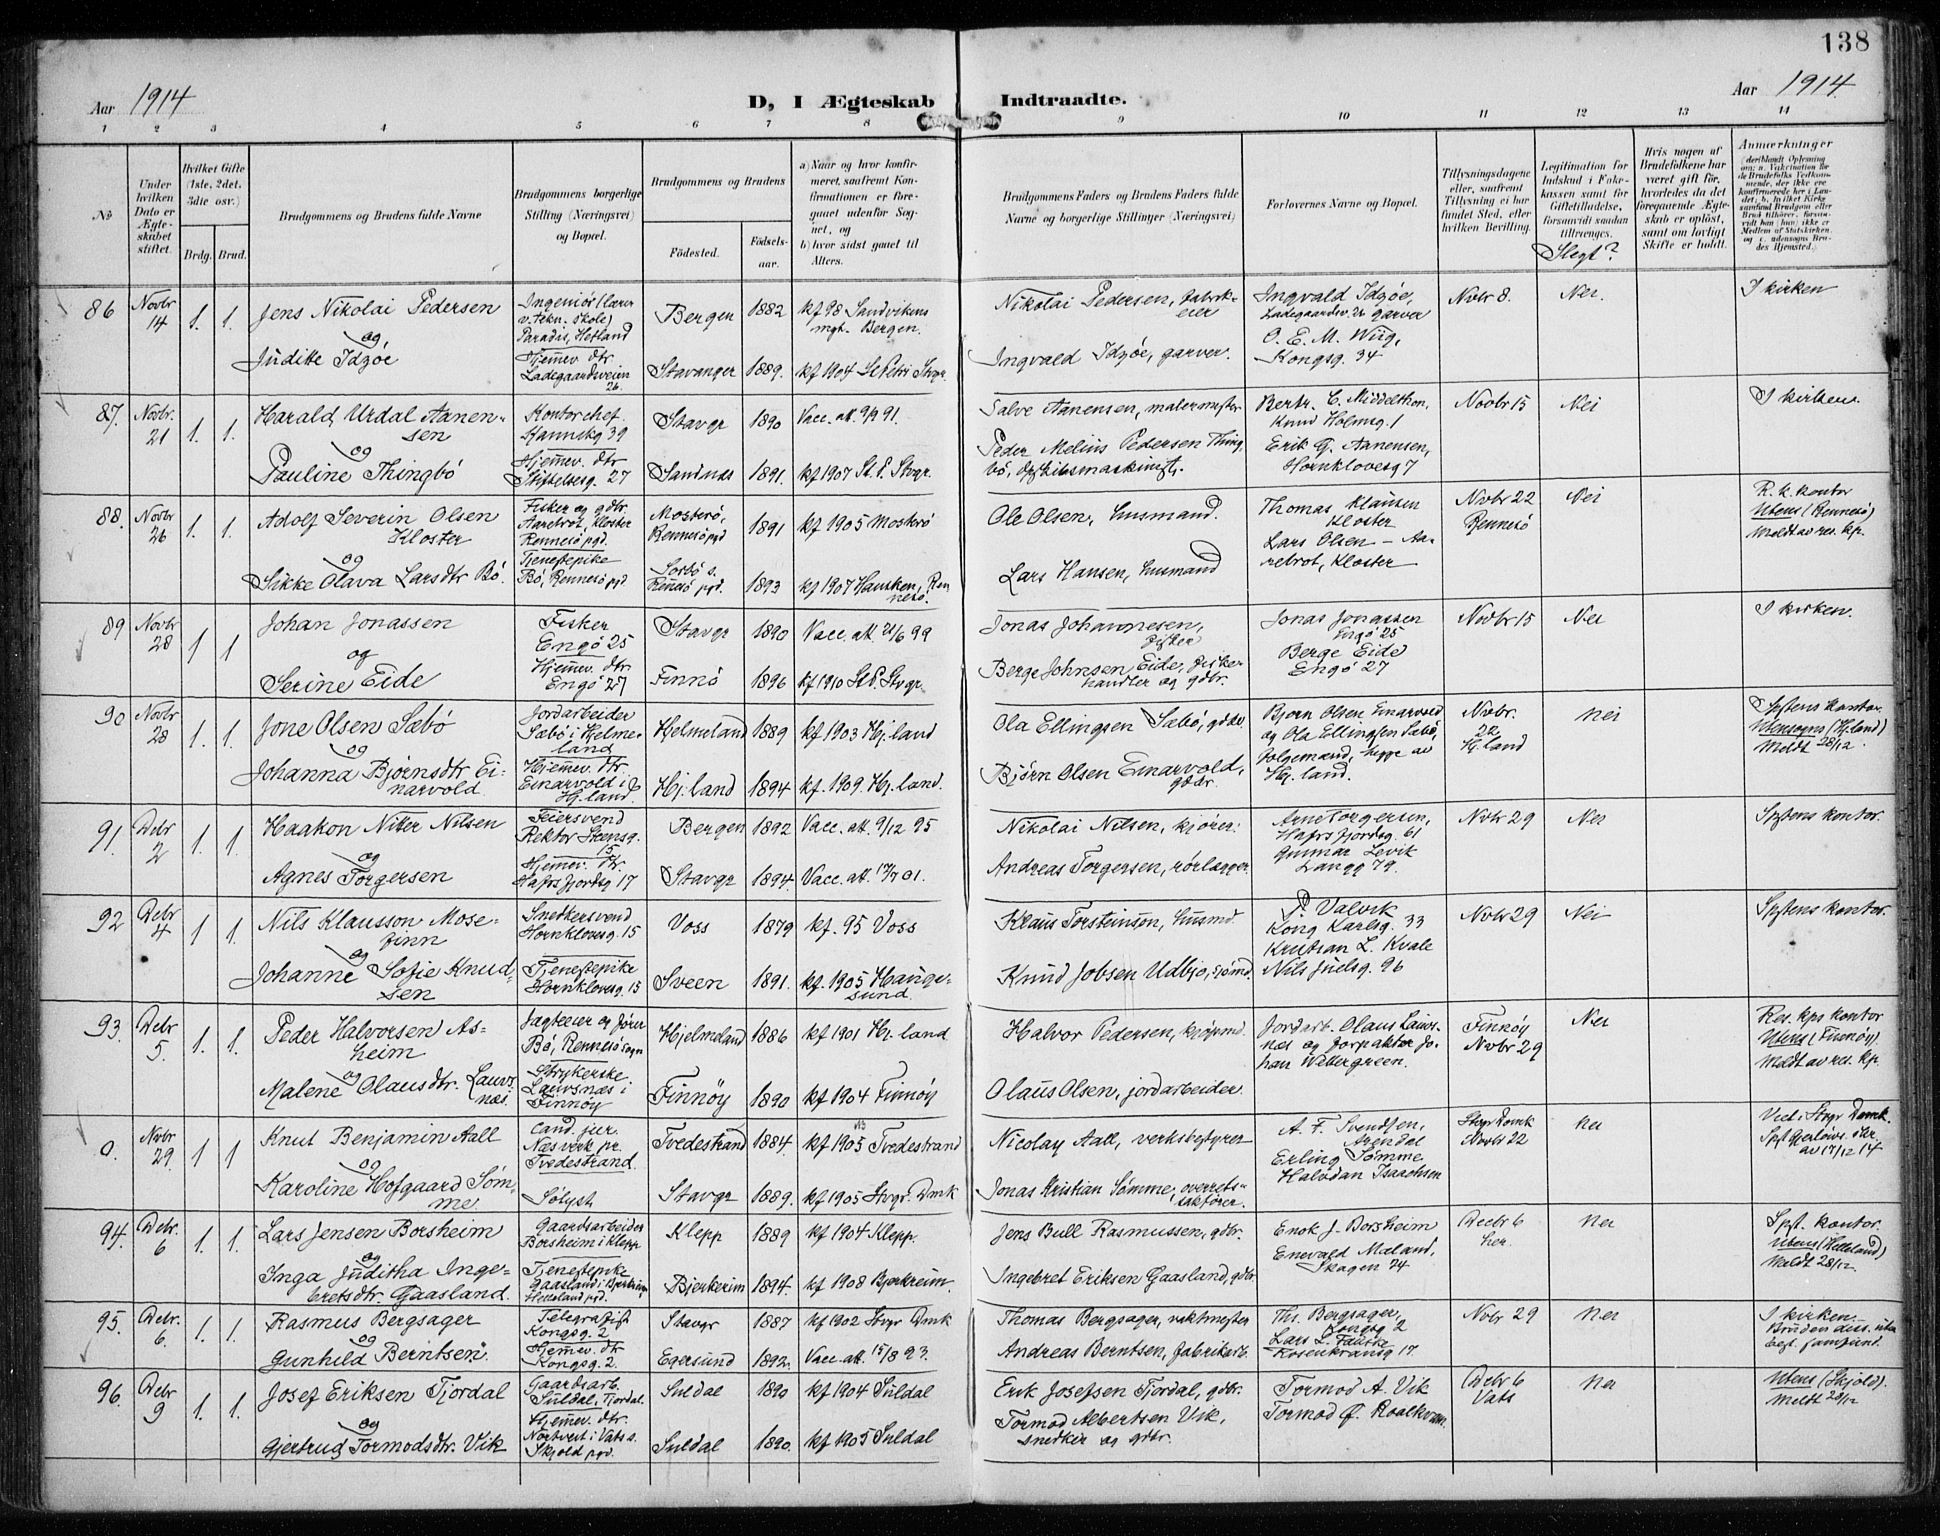 138
Aar 1914
D, I Ægteskab Indtraadte.
Aar 1914
1 2 3 4 5 6 7 8 9 10 11 12 13 14
No
Under hvilken Dato er Ægteskabet stiftet.
Hvilket Gifte (1ste, 2det, 3die osv.)
Brdg. Brud.
Brudgommens og Brudens fulde Navne
Brudgommens borgerlige Stilling (Næringsvei) og Bopæl.
Brudgommens og Brudens
Födested.
Födsels-aar.
a) Naar og hvor konfirmeret, saafremt Konfirmationen er foregaaet udenfor Sognet, og
b) hvor sidst gaaet til Alters.
Brudgommens Faders og Brudens Faders fulde Navne og borgerlige Stillinger (Næringsvei)
Forlovernes Navne og Bopæl.
Tillysningsdagene eller, saafremt Tillysning ei har fundet Sted, efter hvilken Bevilling.
Legitimation for Indskud i Enkekassen samt for Giftetilladelse, forsaavidt saadan tiltrænges.
Slegt?
Hvis nogen af Brudefolkene har været gift för, hvorledes da det foregaaende Ægteskab er oplöst, samt om lovligt Skifte er holdt.
Anmerkninger
86 Novbr 14 1. 1. Jens Nikolai Pedersen
og
Juditte Idzøe
Ingeniør (lærer v. tekn. skole) Paradis, Hetland
Hjemev. dtr Ladegaardsveien 26
Bergen 1882 kf 98 Sandvikens mgt. Bergen.
Stavanger 1889. kf 1904 St Petri Stvgr.
Nikolai Pedersen, fabrikeier
Ingvald Idzøe, garver.
Ingvald Idzøe, Ladegaardsv. 26 garver
O. E. M. Wiig, Kongsg. 34
Novbr 8. Nei. I kirken
87. Novbr. 21 1. 1. Harald Urdal Aanensen
og
Pauline Thingbö
Kontorchef Kannikg 39
Hjemev. dtr Stiftelsesg. 27
Stavgr 1890 Vacc. att. 9/9 91.
Sandnes 1891. kf 1907 St. P. Stvgr.
Salve Aanensen, malermester
Peder Melius Pedersen Thingbö,
Bertr. C. Middelthon, Knud Holmsg. 1
Erik G. Aanensen, Hornklovesg 7
Novbr 15 Nei I kirken.
88. Novbr 26 1. 1. Adolf Severin Olsen Kloster
og
Sikke Olava Larsdtr Bö.
Fisker og gdbr. Aaretrot, Kloster Rennesö pgd.
Tjenestepike Bö, Rennesö pgd
Mosterö, Rennesö pgd 1891 kf 1905 Mosterö
Sørbö s. Rennesö pgd. 1893 kf 1907 Hausken, Rennesö.
Ole Olsen, husmand.
Lars Hansen, husmand
Thomas Klausen Kloster
Lars Olsen – Aaretrot, Kloster
Novbr 22 Rennesö Nei
R. k. kontor
Utens (Rennesö)
Meldt av res. kp.
89 Novbr 28 1 1 Johan Jonassen
og
Serine Eide
Fisker Engö 25
Hjemev. dtr Engö 27
Stavgr 1890 Vacc. att 21/6 99
Finnö 1896 kf 1910 St P. Stvgr.
Jonas Johannesen, fisker
Berge Johnsen Eide, fiskehandler og gdbr.
Jonas Jonassen Engö 25
Berge Eide Engö 27
Novbr 15 Nei I kirken.
90 Novbr 28 1. 1. Jone Olsen Sæbö
og
Johanna Bjørnsdtr Einarvold
Jordarbeider Sæbö i Hjelmeland
Hjemev. dtr. Einarvold i Hj.land.
Hjelmeland 1889 kf 1903 Hj.land
Hj.land 1894 kf. 1909 Hj.land.
Ola Ellingsen Sæbö, gdbr.
Bjørn Olsen Einarvold, gdbr.
Bjørn Olsen Einarvold og Ola Ellingsen Sæbö, begge av Hj.land.
Novbr. 22 Hj.land nei
Spstens kontor.
Utensogns (Hj.land)
Meldt 28/12.
91. Debr 2 1. 1. Haakon Nitter Nilsen
og
Agnes Torgersen
Feiersvend Rektor Steensg. 15
Hjemev. dtr. Hafrsfjordsg 17
Bergen 1892 Vacc. att 9/12 95
Stavgr 1894. Vacc. att. 17/7 01.
Nikolai Nilsen, kjører.
Andreas Torgersen, rørlægger.
Arne Torgersen, Hafrsfjordsg. 61
Gunnar Levik Langg 79.
Novbr 29 Nei Spstens kontor.
92 Debr 4 1 1. Nils Klausson Mosefinn
og
Johanne Sofie Knudsen
Snedkersvend Hornklovesg. 15
Tjenestepike Hornklovesg. 15
Voss 1879 kf. 95 Voss
Sveen 1891. kf. 1905 Haugesund.
Klaus Torsteinson, husmd.
Knud Jobsen Udbjo, sjømd.
P Valvik Kong Karlsg. 33
Kristian L. Kvale Nils Juelsg. 96
Novbr 29 Nei Spstens kontor.
93. Debr 5. 1. 1. Peder Halvorsen Asheim
og
Malene Olausdtr. Lauvsnæs.
Jagteeier og fører Bö, Rennesö sogn
Strykerske Lauvsnæs i Finnöy
Hjelmeland 1886 kf 1901 Hj.land
Finnöy 1890 kf 1904 Finnöy
Halvor Pedersen, kjöpmd.
Olaus Olsen, jordarbeider.
Jordarb. Olaus Lauvsnæs og forpakter Johan Westergreen.
Finnöy Novbr 29 Nei
Res. kps kontor
Utens (Finnöy).
Meldt av res. kp.
0. Novbr 29. 1 1 Knut Benjamin Aall
og
Karoline Hofgaard Sömme
Cand. jur. Næsverk pr. Tvedestrand
Sølyst
Tvedestrand 1884. kf 1905 Tvedestrand
Stavgr 1889. kf 1905 Stvgr. Dmk
Nicolay Aall, verksbestyrer
Jonas Kristian Sömme, overretssakfører.
A. F. Svendsen, Arendal
Erling Sömme
Halvdan Isaachsen
Stvgr Domk Novbr 22 nei
Viet i Stvgr Domk.
av 17/12 14
94. Debr. 6 1. 1. Lars Jensen Borsheim
og
Inga Juditha Ingebretsdtr Gaasland.
Gaardsarbeider Borsheim i Klepp
Tjenestepike Gaasland i Bjerkreim Helleland pgd.
Klepp 1889 kf 1904 Klepp.
Bjerkreim 1894. kf 1908 Bjerkreim.
Jens Bull Rasmussen, gdbr.
Ingebret Eriksen Gaasland, gdbr.
Enok J. Borsheim
Enevald Maland, Skagen 24
Decbr 6 her. nei
Spst. kontor.
Utens (Helleland)
Meldt 28/12.
95. Debr. 6. 1. 1. Rasmus Bergsager
og
Gunhild Berntsen.
Telegrafist Kongsg. 2
Hjemev. dtr Kongsg. 2.
Stavgr 1887 kf 1902 Stvgr Dmk
Egersund 1892. Vacc. att. 15/8 93.
Thomas Bergsager, vaktmester
Andreas Berntsen, fabrikarb.
Th. Bergsager, Kongsg 2
Lars L. Rosenkransg 17
Novbr 29 nei
I kirken.
96. Debr 9 1. 1. Josef Eriksen Fjordal
og
Gjertrud Tormodsdtr. Vik
Gaardsarb. Suldal, Fjordal.
Hjemev. dtr. i Vats s. Skjold pgd.
Suldal 1890 kf 1904 Suldal
Suldal 1890. kf 1905 Suldal
Erik Josefsen Fjordal, gdbr.
Tormod Albertsen Vik, snedker og gdbr.
Tormod A. Vik
Tormod Ø. Roalkvam.
Debr 6 Vats nei
Utens (Skjold).
Meldt 28/12